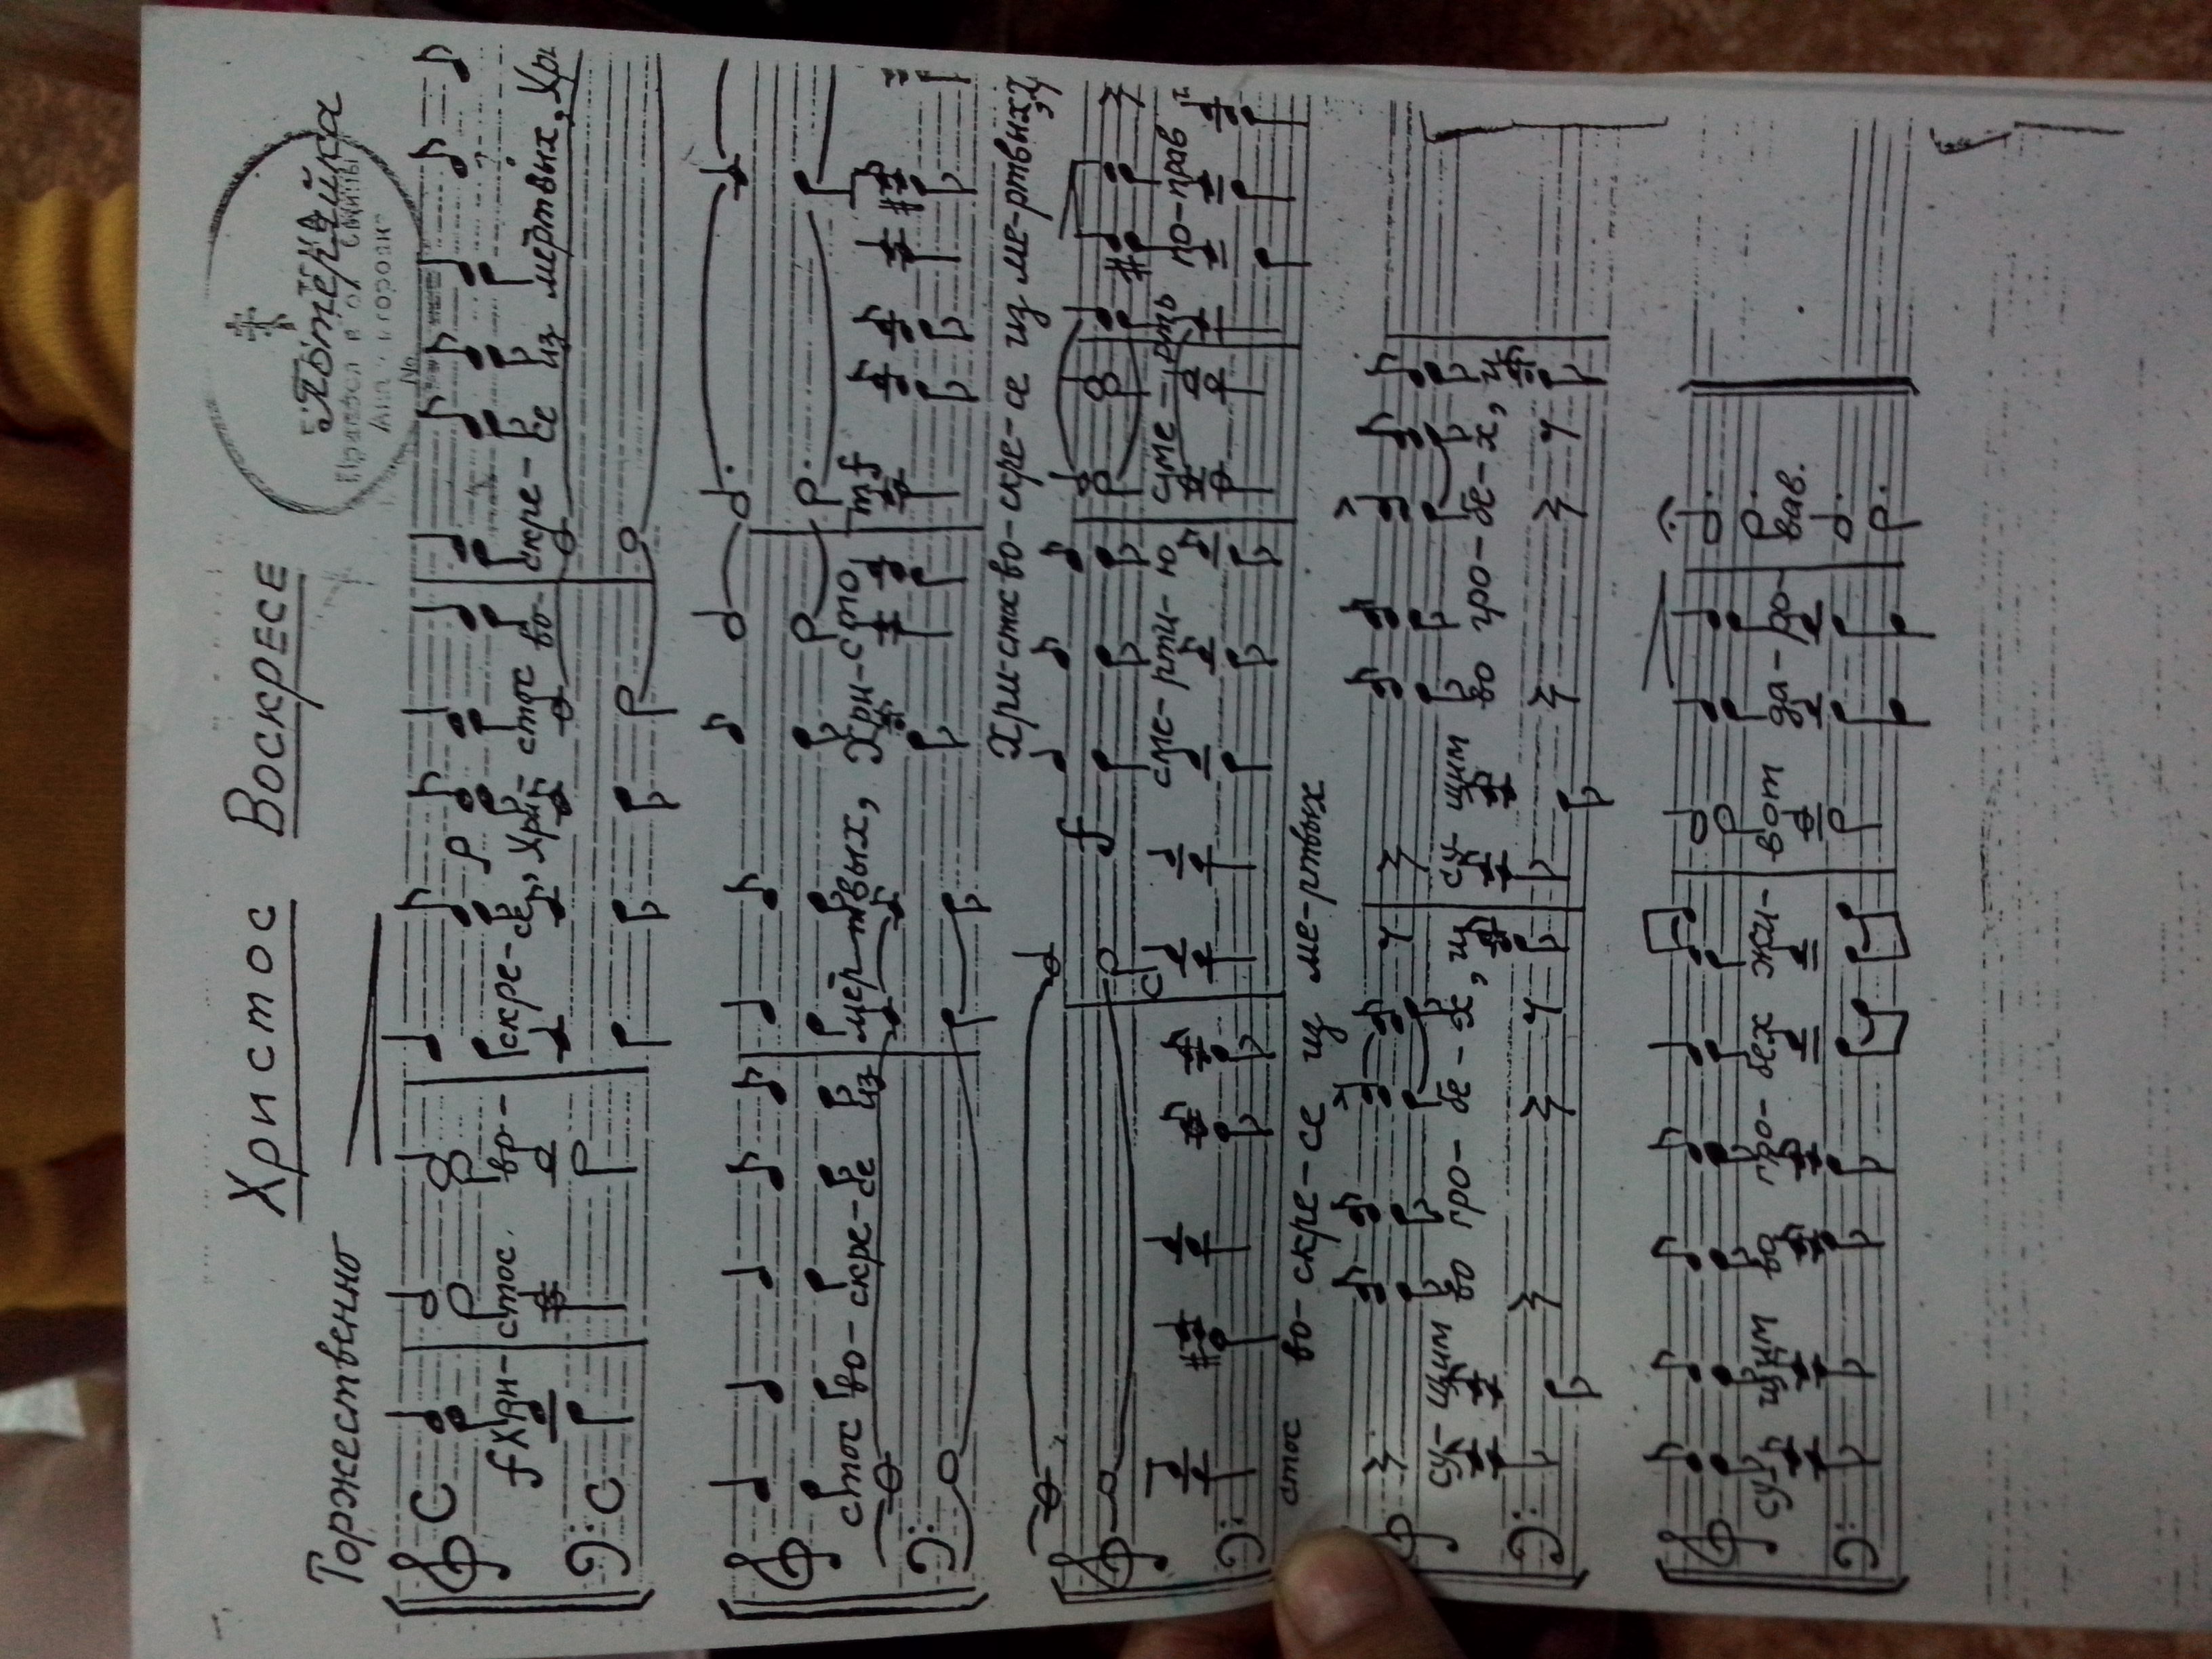 Христос Воскресе
"Пятерика"
Торжественно
f Хри- стос во- скре-се, Хри- стос во- скре- се из мертвых, Хри
p
стос во- скре-се из мертвых, Хри-сто
mf
Христос во-скре-се из ме-ртвых
f
сме- рти- ю сме- рть по- прав
стос во- скре-се из ме-ртвых
су- щим во гро- бе- х, су- щим во гро- бе- х,
су- щим во гро- бех жи- вот да- ро- вав.